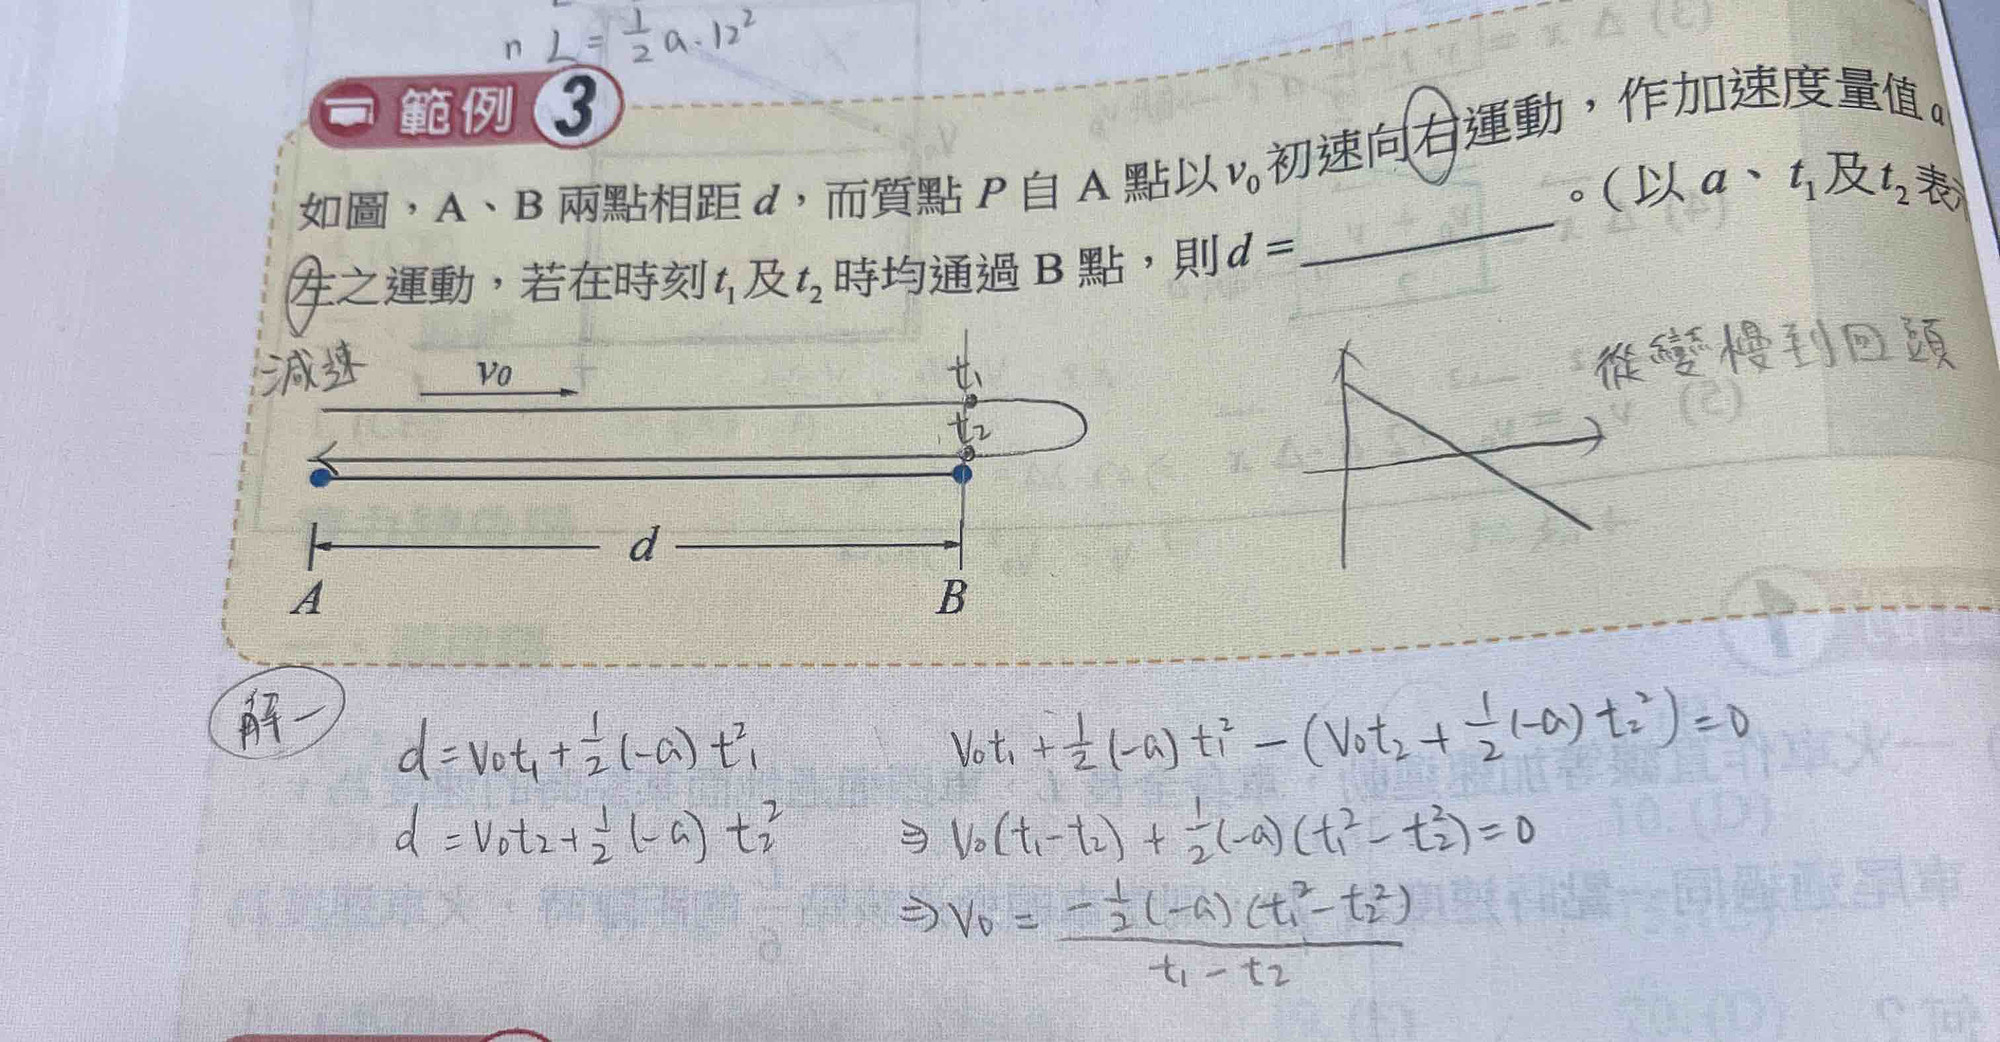 n L = ½ a · 12²
範例 3
如圖，A、B 兩點相距 d，而質點 P 自 A 點以 v₀ 初速向右運動，作加速度量值 a
左之運動，若在時刻 t₁ 及 t₂ 時均通過 B 點，則 d = ________。（以 a、t₁ 及 t₂ 表
減速
v₀
t₁
t₂
從變慢到回頭
d
A
B
解一
d = v₀t₁ + ½(-a)t₁²
v₀t₁ + ½(-a)t₁² - (v₀t₂ + ½(-a)t₂²) = 0
d = v₀t₂ + ½(-a)t₂²
⇒ v₀(t₁-t₂) + ½(-a)(t₁²-t₂²) = 0
⇒ v₀ = -½(-a)(t₁²-t₂²)
t₁-t₂